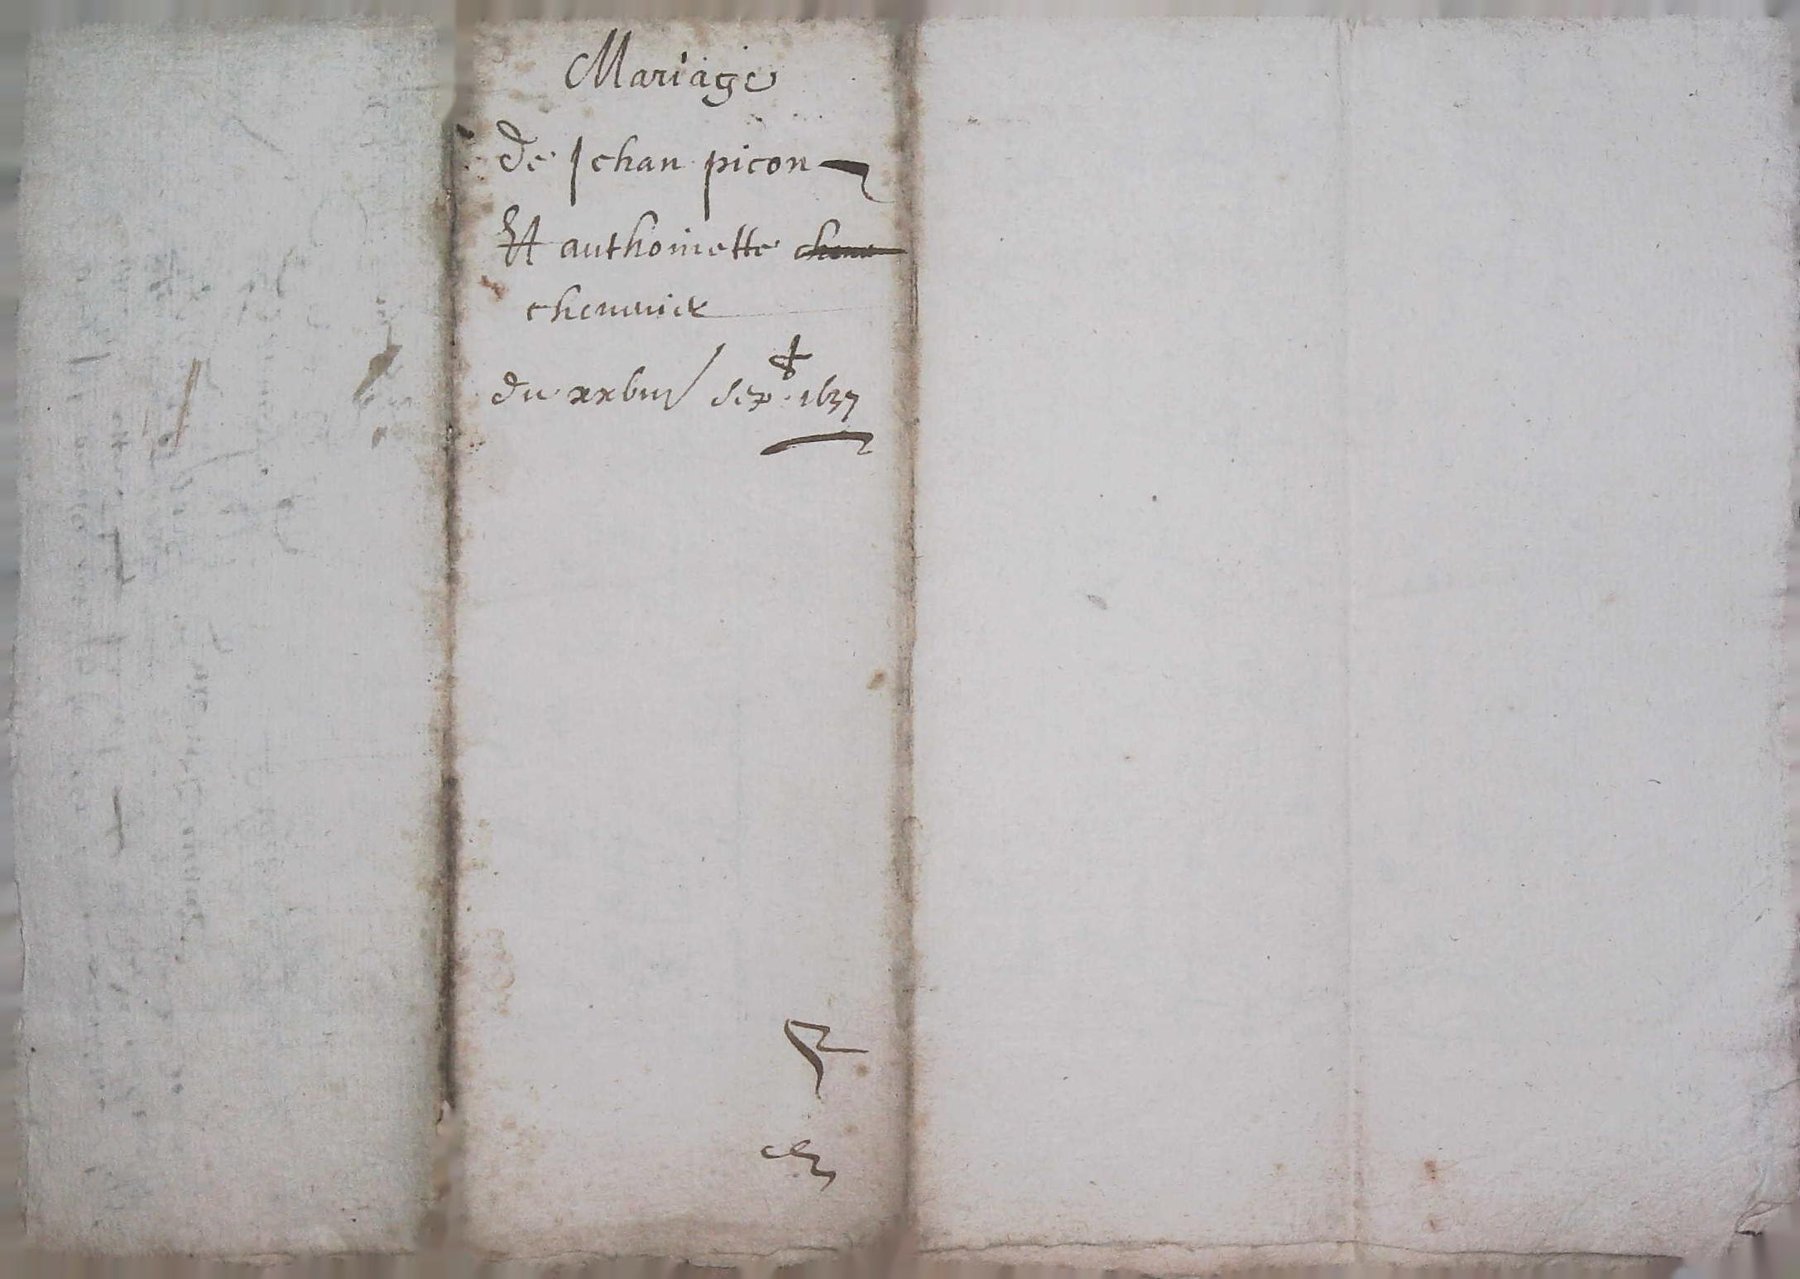 Mariage
de Jehan picon
Et anthoinette chene
chenevier
du xxviij sep.bre 1637